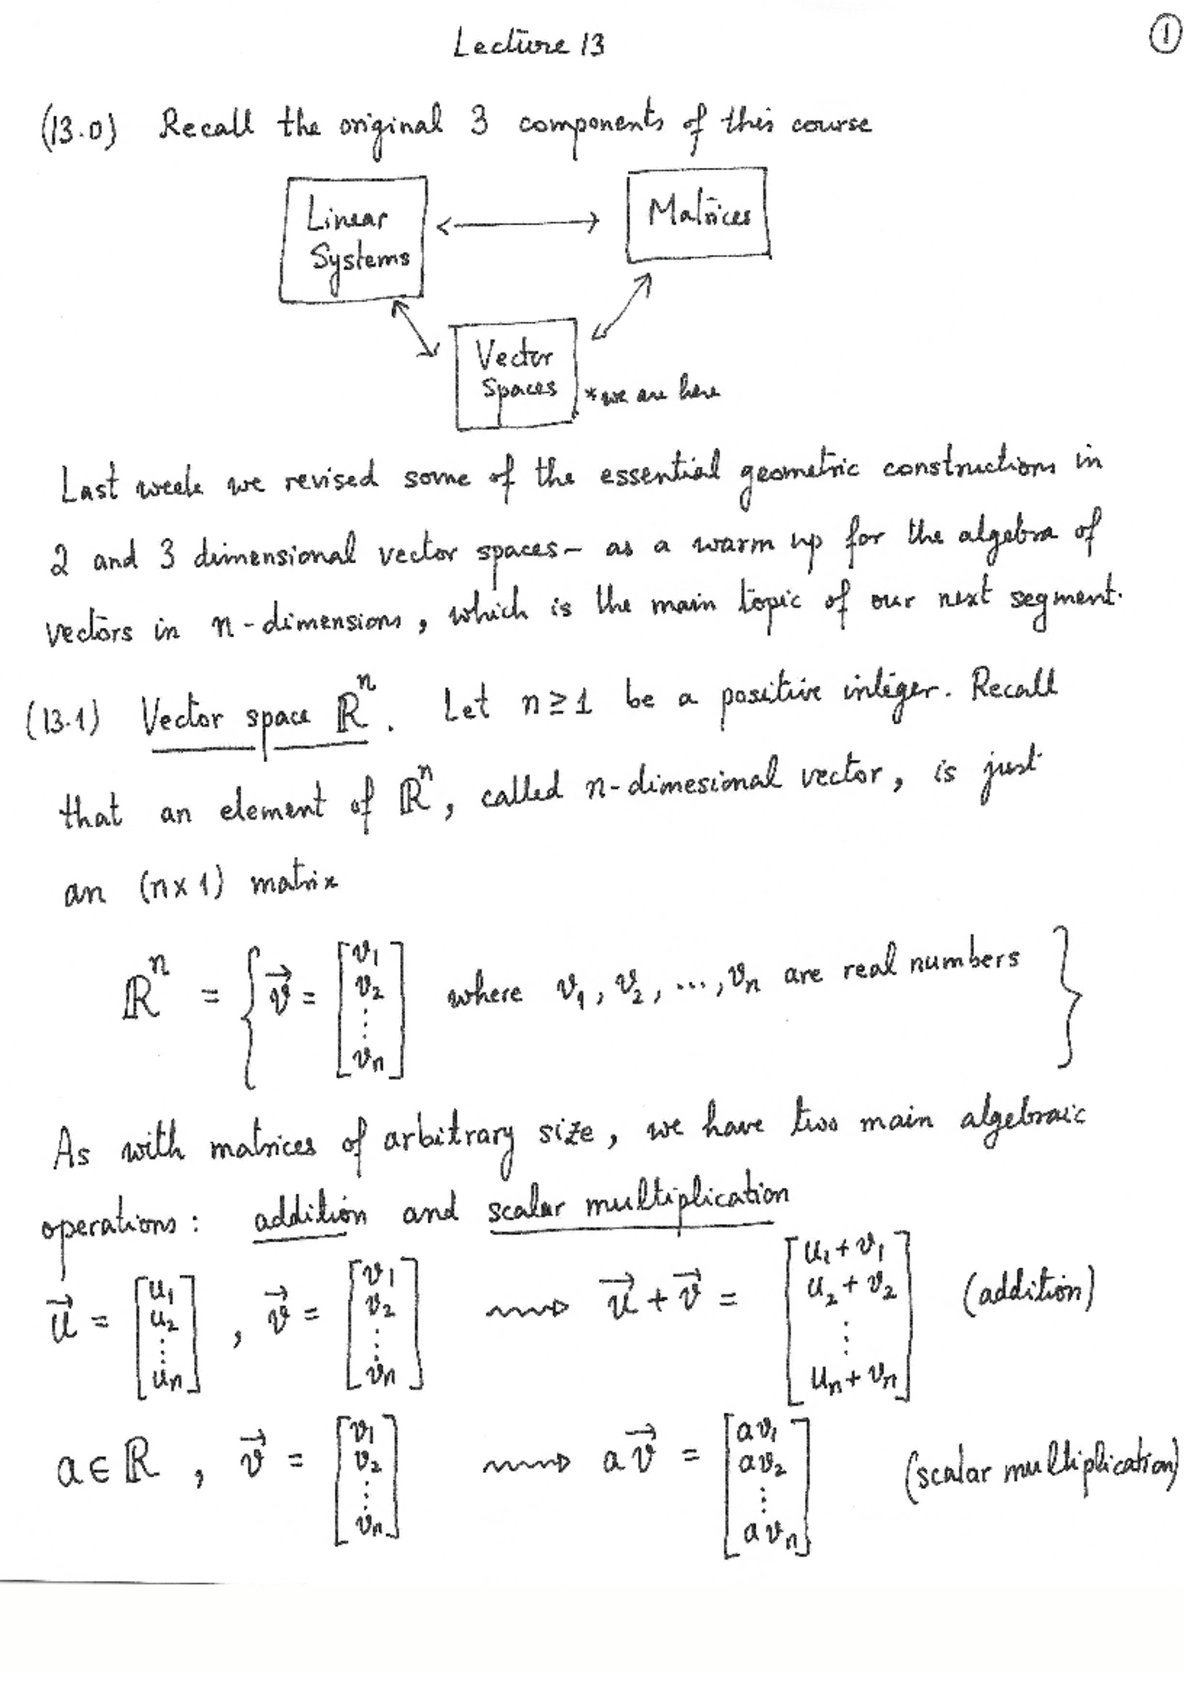 Lecture 13
①
(13.0) Recall the original 3 components of this course
Linear Systems ⟷ Matrices
Vector Spaces * we are here
Last week we revised some of the essential geometric constructions in
2 and 3 dimensional vector spaces - as a warm up for the algebra of
vectors in n-dimensions, which is the main topic of our next segment.
(13.1) Vector space ℝⁿ. Let n ≥ 1 be a positive integer. Recall
that an element of ℝⁿ, called n-dimesional vector, is just
an (n×1) matrix
ℝⁿ = { v⃗ = [v₁ v₂ ⋮ vₙ] where v₁, v₂, ..., vₙ are real numbers }
As with matrices of arbitrary size, we have two main algebraic
operations : addition and scalar multiplication
u⃗ = [u₁ u₂ ⋮ uₙ] , v⃗ = [v₁ v₂ ⋮ vₙ] ⇝ u⃗ + v⃗ = [u₁+v₁ u₂+v₂ ⋮ uₙ+vₙ] (addition)
a ∈ ℝ , v⃗ = [v₁ v₂ ⋮ vₙ] ⇝ a v⃗ = [av₁ av₂ ⋮ avₙ] (scalar multiplication)